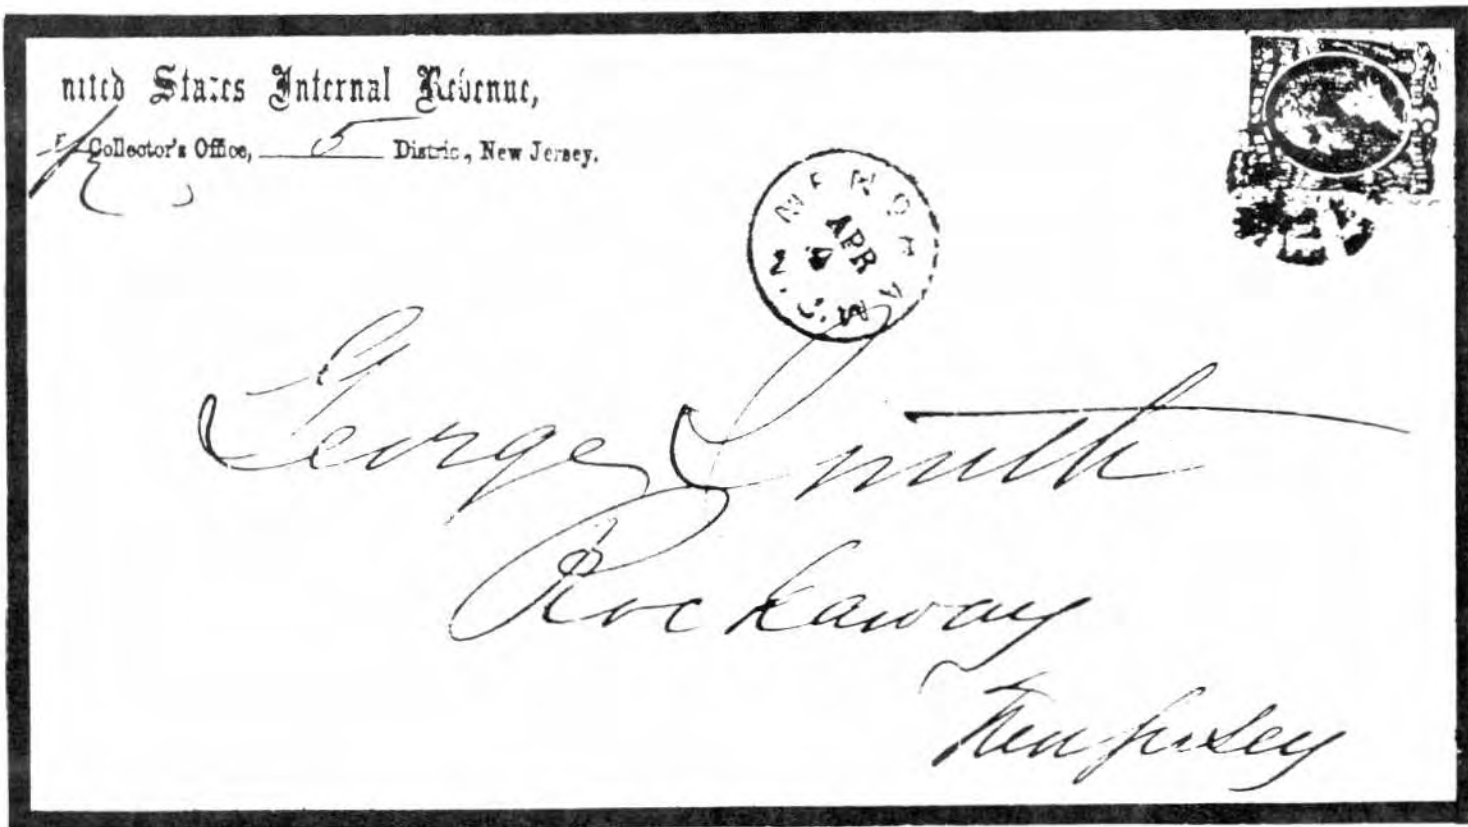 nited States Internal Revenue,
Collector's Office, 5 District, New Jersey.
NEWARK
APR
4
N.J.
George Smith
Rockaway
New Jersey